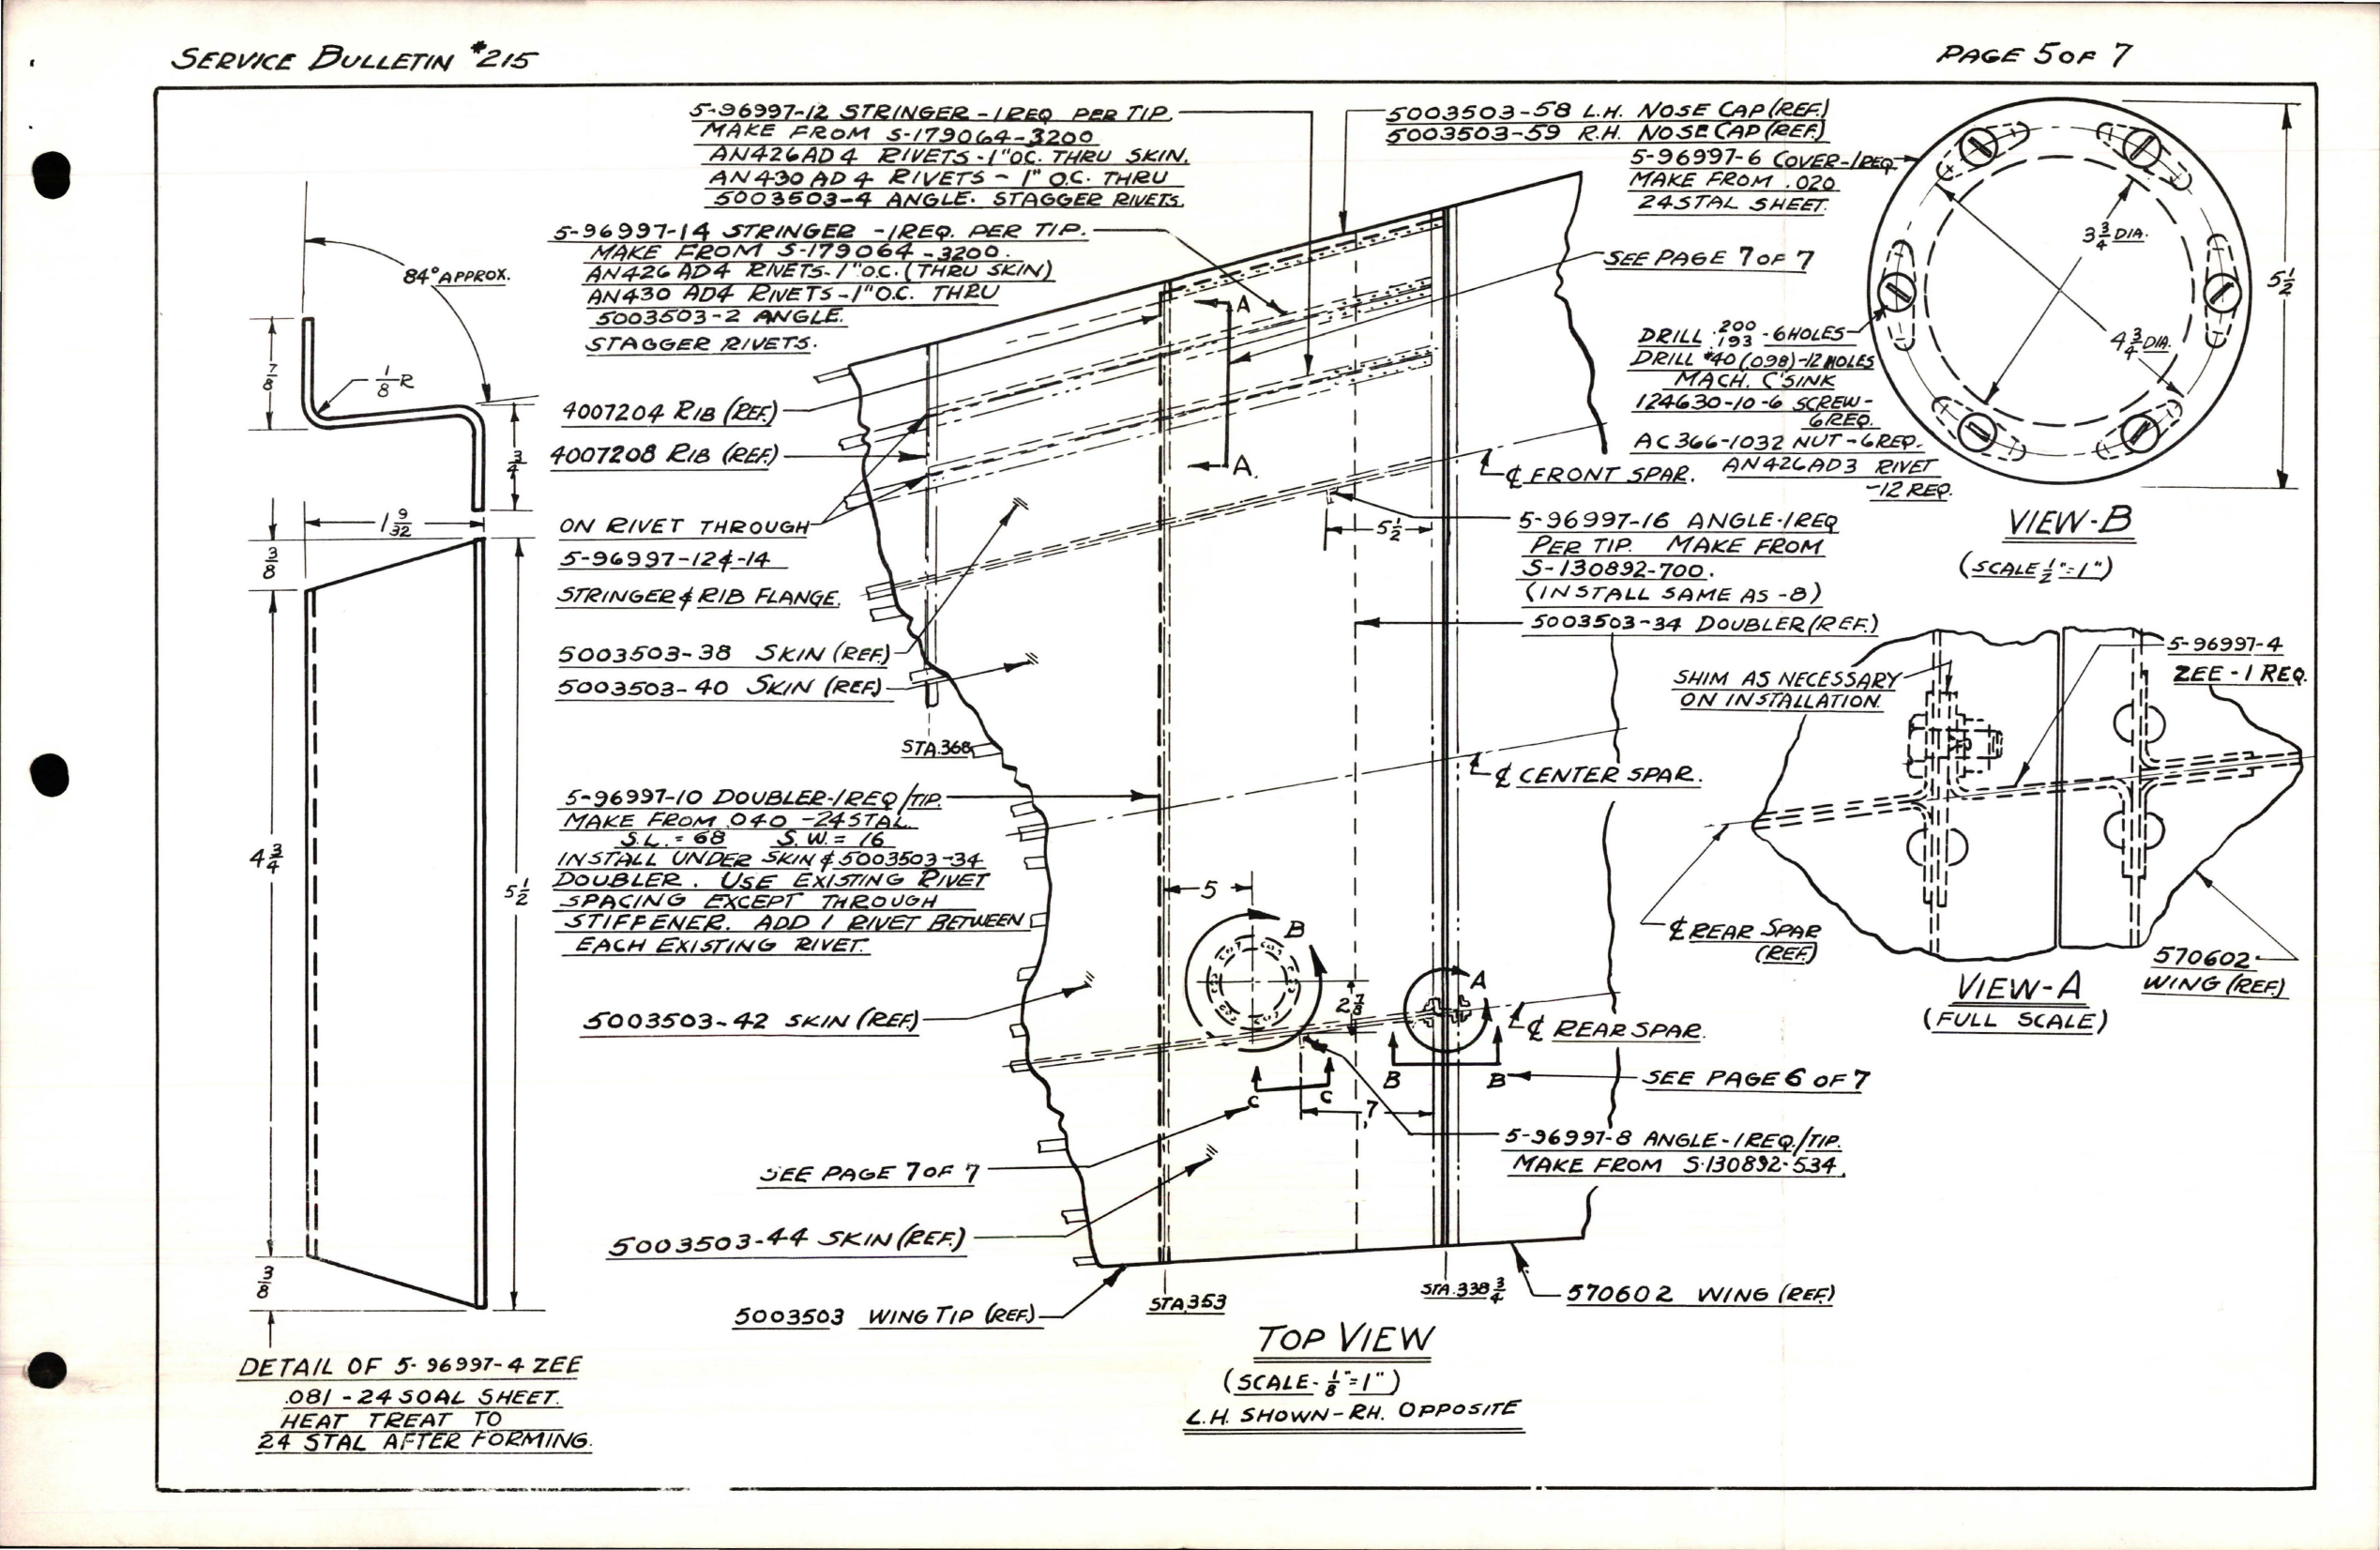 SERVICE BULLETIN #215
PAGE 5 OF 7
5-96997-12 STRINGER - 1 REQ PER TIP.
MAKE FROM S-179064-3200
AN426AD4 RIVETS-1"OC. THRU SKIN.
AN430AD4 RIVETS - 1" O.C. THRU
5003503-4 ANGLE. STAGGER RIVETS.
5-96997-14 STRINGER - 1 REQ. PER TIP.
MAKE FROM S-179064-3200.
AN426 AD4 RIVETS-1"O.C. (THRU SKIN)
AN430 AD4 RIVETS-1"O.C. THRU
5003503-2 ANGLE.
STAGGER RIVETS.
5003503-58 L.H. NOSE CAP (REF.)
5003503-59 R.H. NOSE CAP (REF.)
5-96997-6 COVER-1 REQ
MAKE FROM .020
24STAL SHEET.
SEE PAGE 7 OF 7
DRILL .200 .193 - 6 HOLES
DRILL #40 (.098)-12 HOLES
MACH. C'SINK
124630-10-6 SCREW-
6 REQ.
AC366-1032 NUT-6 REQ.
AN426AD3 RIVET
-12 REQ.
3 3/4 DIA.
4 3/4 DIA.
5 1/2
VIEW-B
(SCALE 1/2"=1")
84° APPROX.
7/8
1/8 R
3/4
1 9/32
3/8
4 3/4
5 1/2
3/8
DETAIL OF 5-96997-4 ZEE
.081 - 24SOAL SHEET.
HEAT TREAT TO
24 STAL AFTER FORMING.
4007204 RIB (REF.)
4007208 RIB (REF.)
ON RIVET THROUGH
5-96997-12 & -14
STRINGER & RIB FLANGE.
5003503-38 SKIN (REF.)
5003503-40 SKIN (REF.)
STA.368
5-96997-10 DOUBLER-1 REQ/TIP.
MAKE FROM .040 -24STAL.
S.L. = 68 S.W. = 16
INSTALL UNDER SKIN & 5003503-34
DOUBLER. USE EXISTING RIVET
SPACING EXCEPT THROUGH
STIFFENER. ADD 1 RIVET BETWEEN
EACH EXISTING RIVET.
5003503-42 SKIN (REF.)
SEE PAGE 7 OF 7
5003503-44 SKIN (REF.)
5003503 WING TIP (REF.)
A
A
℄ FRONT SPAR.
5 1/2
5-96997-16 ANGLE-1 REQ
PER TIP. MAKE FROM
S-130892-700.
(INSTALL SAME AS -8)
5003503-34 DOUBLER (REF.)
℄ CENTER SPAR.
5
B
A
2 7/8
℄ REAR SPAR.
B
B
SEE PAGE 6 OF 7
C
C
7
5-96997-8 ANGLE-1 REQ./TIP.
MAKE FROM S-130892-534.
STA.353
STA.338 3/4
570602 WING (REF.)
TOP VIEW
(SCALE-1/8"=1")
L.H. SHOWN-RH. OPPOSITE
SHIM AS NECESSARY
ON INSTALLATION.
5-96997-4
ZEE - 1 REQ.
℄ REAR SPAR
(REF.)
570602
WING (REF.)
VIEW-A
(FULL SCALE)